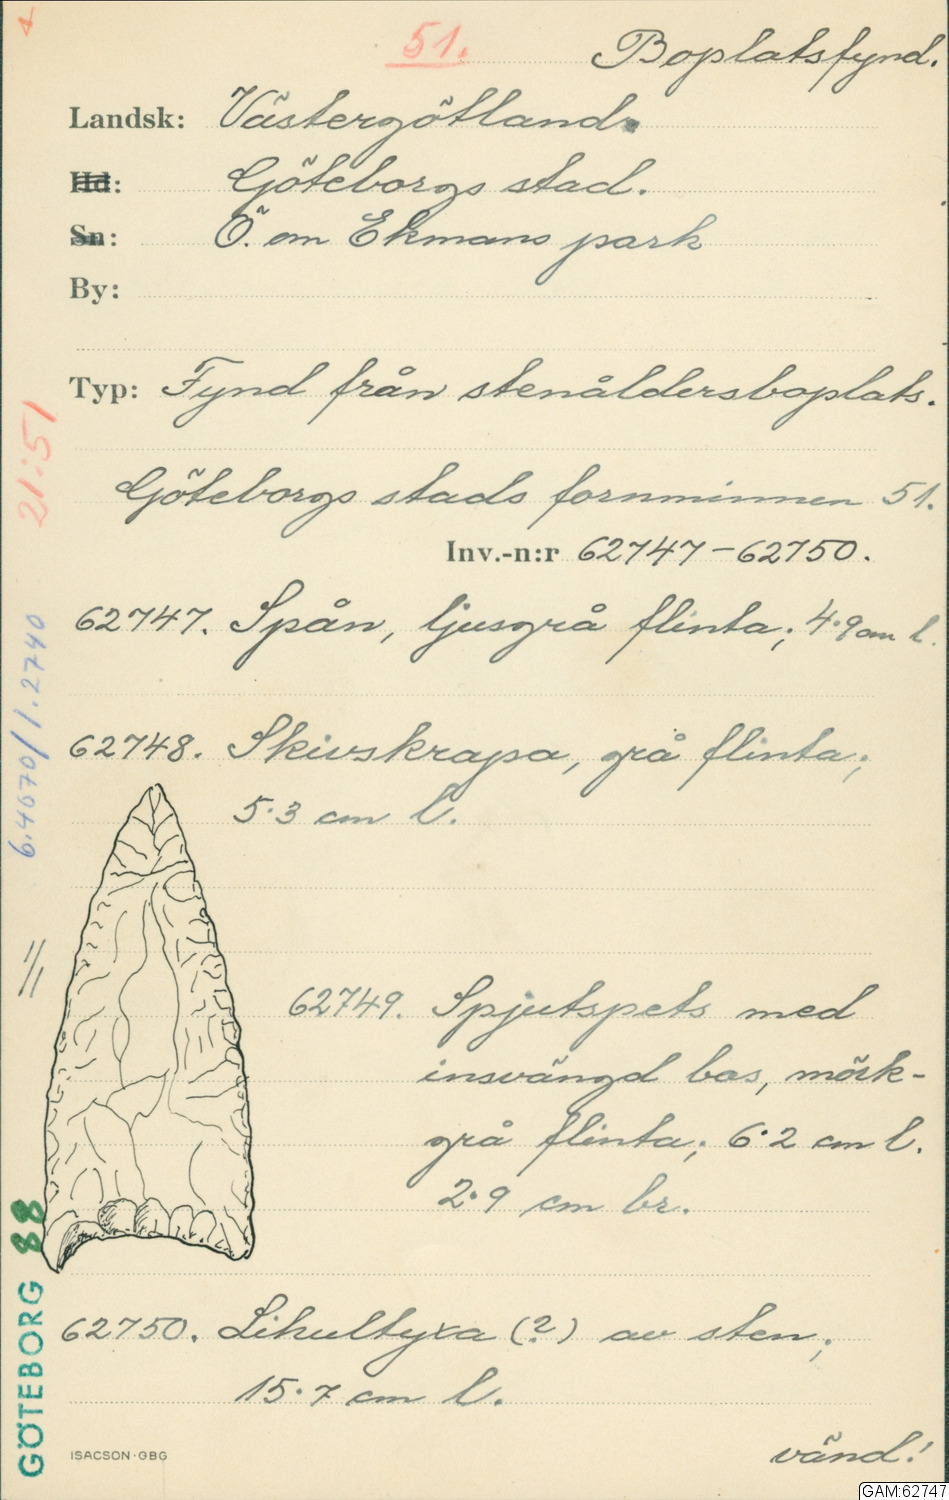 51.
Boplatsfynd.
Landsk: Västergötland.
Hd: Göteborgs stad.
Sn: Ö. om Ekmans park
By:
Typ: Fynd från stenåldersboplats.
Göteborgs stads fornminnen 51.
Inv.-n:r 62747-62750.
62747. Spån, ljusgrå flinta; 4.9 cm l.
62748. Skivskrapa, grå flinta;
5.3 cm l.
62749. Spjutspets med
insvängd bas, mörk-
grå flinta; 6.2 cm l.
2.9 cm br.
62750. Lihultyxa (?) av sten;
15.7 cm l.
vänd!
ISACSON·GBG
21:51
6.4670/1.2740
1/1
GÖTEBORG 88
GAM:62747